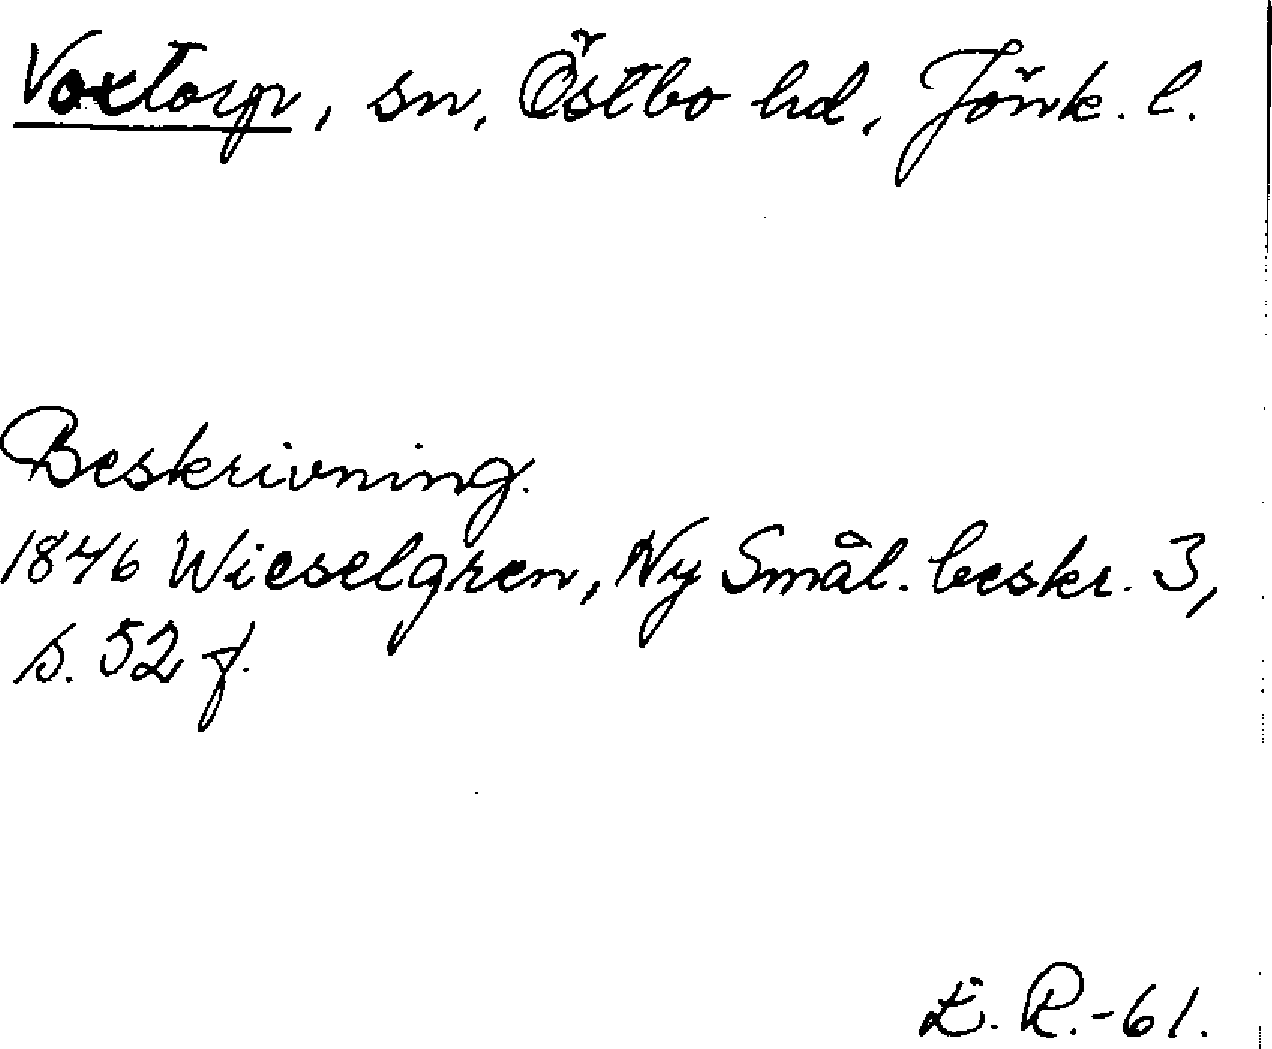 Voxtorp, sn, Östbo hd, Jönk. l.
Beskrivning.
1846 Wieselgren, Ny Smål. beskr. 3,
s. 52 f.
E. R.-61.